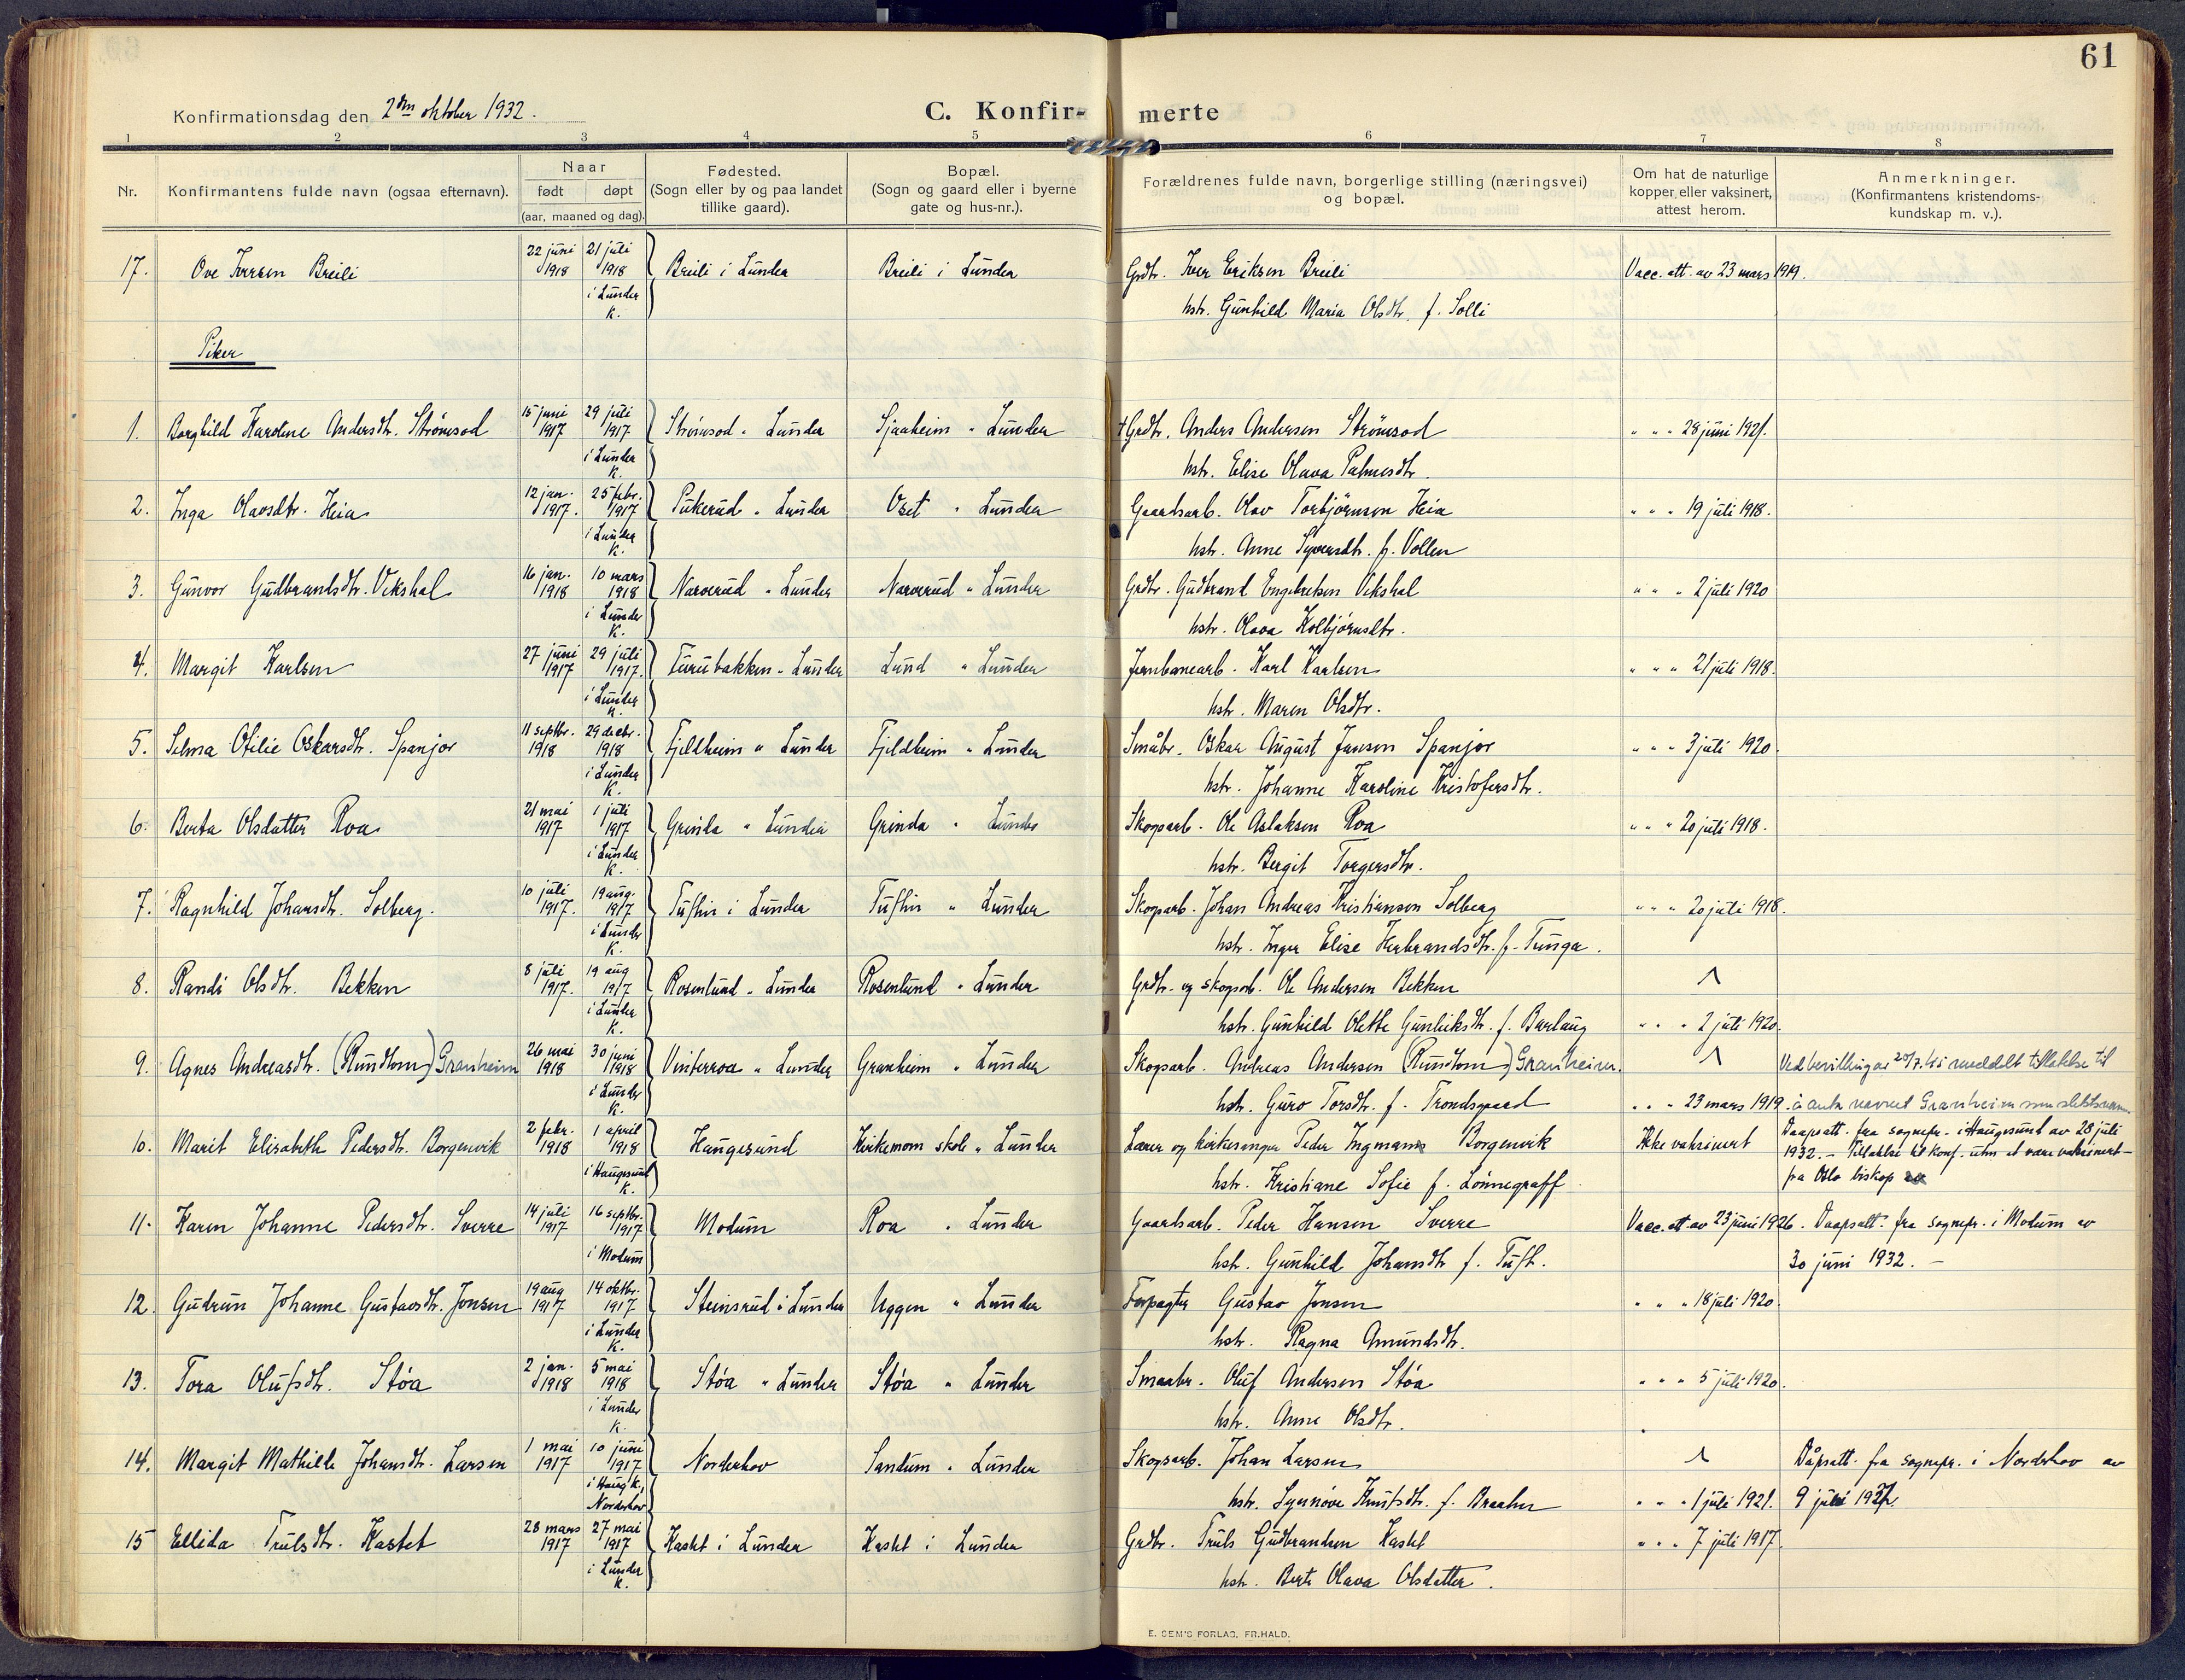 61
Konfirmationsdag den 2den oktober 1932.
C. Konfir- merte
1 2 3 4 5 6 7 8
Nr.
Konfirmantens fulde navn (ogsaa efternavn).
Naar
født døpt
(aar, maaned og dag).
Fødested.
(Sogn eller by og paa landet
tillike gaard).
Bopæl.
(Sogn og gaard eller i byerne
gate og hus-nr.).
Forældrenes fulde navn, borgerlige stilling (næringsvei)
og bopæl.
Om hat de naturlige
kopper eller vaksinert,
attest herom.
Anmerkninger.
(Konfirmantens kristendoms-
kundskap m. v.).
17. Ove Iversen Breili 22 juni 1918 21 juli 1918 i Lunder K. Breili i Lunder Breili i Lunder Grdbr. Iver Eriksen Breili Vacc. att. av 23 mars 1919.
hstr. Gunhild Maria Olsdtr. f. Solli
Piker
1. Borghild Karoline Andersdtr. Strömsod 15 juni 1917 29 juli 1917 i Lunder K. Strömsod " Lunder Sjaaheim " Lunder † Grdbr. Anders Andersen Strömsod " " " 28 juni 1921.
hstr. Elise Olava Palmesdtr.
2. Inga Olavsdtr. Heia 12 jan. 1917. 25 febr. 1917 i Lunder K. Pukerud " Lunder Oset " Lunder Gaardsarb. Olav Torbjörnsen Heia " " " 19 juli 1918.
hstr. Anne Syversdtr. f. Vollen
3. Gunvor Gudbrandsdtr. Vekshal 16 jan. 1918 10 mars 1918 i Lunder K. Narverud " Lunder Narverud " Lunder Grdbr. Gudbrand Engebretsen Vekshal " " " 2 juli 1920
hstr. Olava Kolbjörnsdtr.
4. Margit Karlsen 27 juni 1917 29 juli 1917. i Lunder K. Turubakken " Lunder Lund " Lunder Jernbanearb. Karl Karlsen " " " 21 juli 1918.
hstr. Maren Olsdtr.
5. Selma Otilie Oskarsdtr. Spanjor 11 septbr. 1918 29 decbr. 1918 i Lunder K. Fjeldheim " Lunder Fjeldheim " Lunder Småbr. Oskar August Jansen Spanjor " " " 3 juli 1920.
hstr. Johanne Karoline Kristofersdtr.
6. Berta Olsdatter Roa 21 mai 1917 1 juli 1917 i Lunder K. Grinda " Lunder Grinda " Lunder Skogsarb. Ole Aslaksen Roa " " " 20 juli 1918.
hstr. Bergit Torgersdtr.
7. Ragnhild Johansdtr. Solberg. 10 juli 1917. 19 aug. 1917 i Lunder K. Tuftin i Lunder Tuftin " Lunder Skogsarb. Johan Andreas Kristiansen Solberg " " " 20 juli 1918.
hstr. Inger Elise Herbrandsdtr. f. Tunga.
8. Randi Olsdtr. Bekken 8 juli 1917. 19 aug 1917 i Lunder K. Rosenlund " Lunder Rosenlund " Lunder Grdbr. og skogsarb. Ole Andersen Bekken
hstr. Gunhild Olette Gunleiksdtr. f. Barlaug " " " 2 juli 1920.
9. Agnes Andreasdtr. (Rundtom) Granheim 26 mai 1918 30 juni 1918 i Lunder K. Vinterroa " Lunder Granheim " Lunder Skogsarb. Andreas Andersen (Rundtom) Granheim. Ved bevilling av 20/7. 45 meddelt tillatelse til
hstr. Guro Torsdtr. f. Trondsgaard " " " 23 mars 1919. å anta navnet Granheim som slektsnavn
10. Marit Elisabeth Pedersdtr. Borgenvik 2 febr. 1918 1 april 1918 i Haugesund K. Haugesund Kirkemom skole " Lunder Lærer og kirkesanger Peder Ingmann Borgenvik Ikke vaksinert Daapsatt. fra sognepr. i Haugesund av 28 juli
1932. – Tillatelse til konf. uten at være vaksinert –
hstr. Kristiane Sofie f. Lönnegraff fra Oslo biskop
11. Karen Johanne Pedersdtr. Sverre 14 juli 1917 16 septbr. 1917 i Modum Modum Roa " Lunder Gaardsarb. Peder Hansen Sverre Vacc. att. av 23 juni 1926. Daapsatt. fra sognepr. i Modum av
hstr. Gunhild Johansdtr f. Tuft. 30 juni 1932. –
12. Gudrun Johanne Gustavsdtr. Jonsen 19 aug 1917 14 oktbr. 1917 i Lunder K. Steinsrud i Lunder Uggen " Lunder Forpagter Gustav Jonsen " " " 18 juli 1920.
hstr. Ragna Amundsdtr.
13. Tora Olufsdtr. Stöa 2 jan. 1918 5 mai 1918 i Lunder K. Stöa " Lunder Stöa " Lunder Smaabr. Oluf Andersen Stöa " " " 5 juli 1920.
hstr. Anne Olsdtr.
14. Margit Mathilde Johansdtr. Larsen 1 mai 1917 10 juni 1917 i Haug K, Norderhov Norderhov Sandum " Lunder Skogsarb. Johan Larsen Dåpsatt. fra sognepr. i Norderhov av
hstr. Synnöve Knutsdtr. f. Braaten " " " 1 juli 1921. 9 juli
15 Ellida Trulsdtr. Kastet 28 mars 1917 27 mai 1917 i Lunder K. Kastet i Lunder Kastet i Lunder Grdbr. Truls Gudbrandsen Kastet " " " 7 juli 1917.
hstr. Berte Olava Olsdatter.
E. SEM'S FORLAG, FR.HALD.